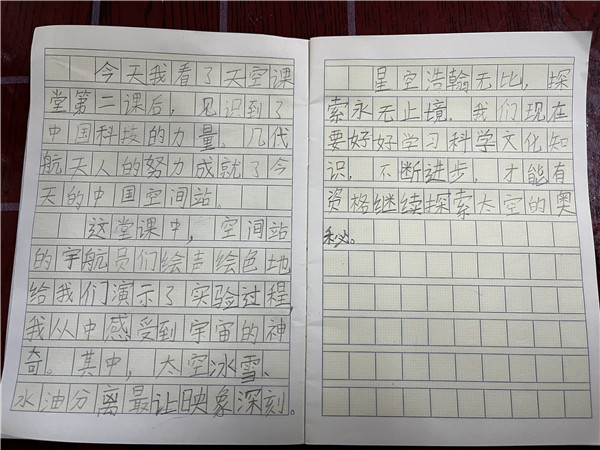 今天我看了天空课
堂第二课后，见识到了
中国科技的力量。几代
航天人的努力成就了今
天的中国空间站。
这堂课中，空间站
的宇航员们绘声绘色地
给我们演示了实验过程，
我从中感受到宇宙的神
奇。其中，太空冰雪、
水油分离最让映象深刻。
星空浩瀚无比，探
索永无止境。我们现在
要好好学习科学文化知
识，不断进步，才能有
资格继续探索太空的奥
秘。